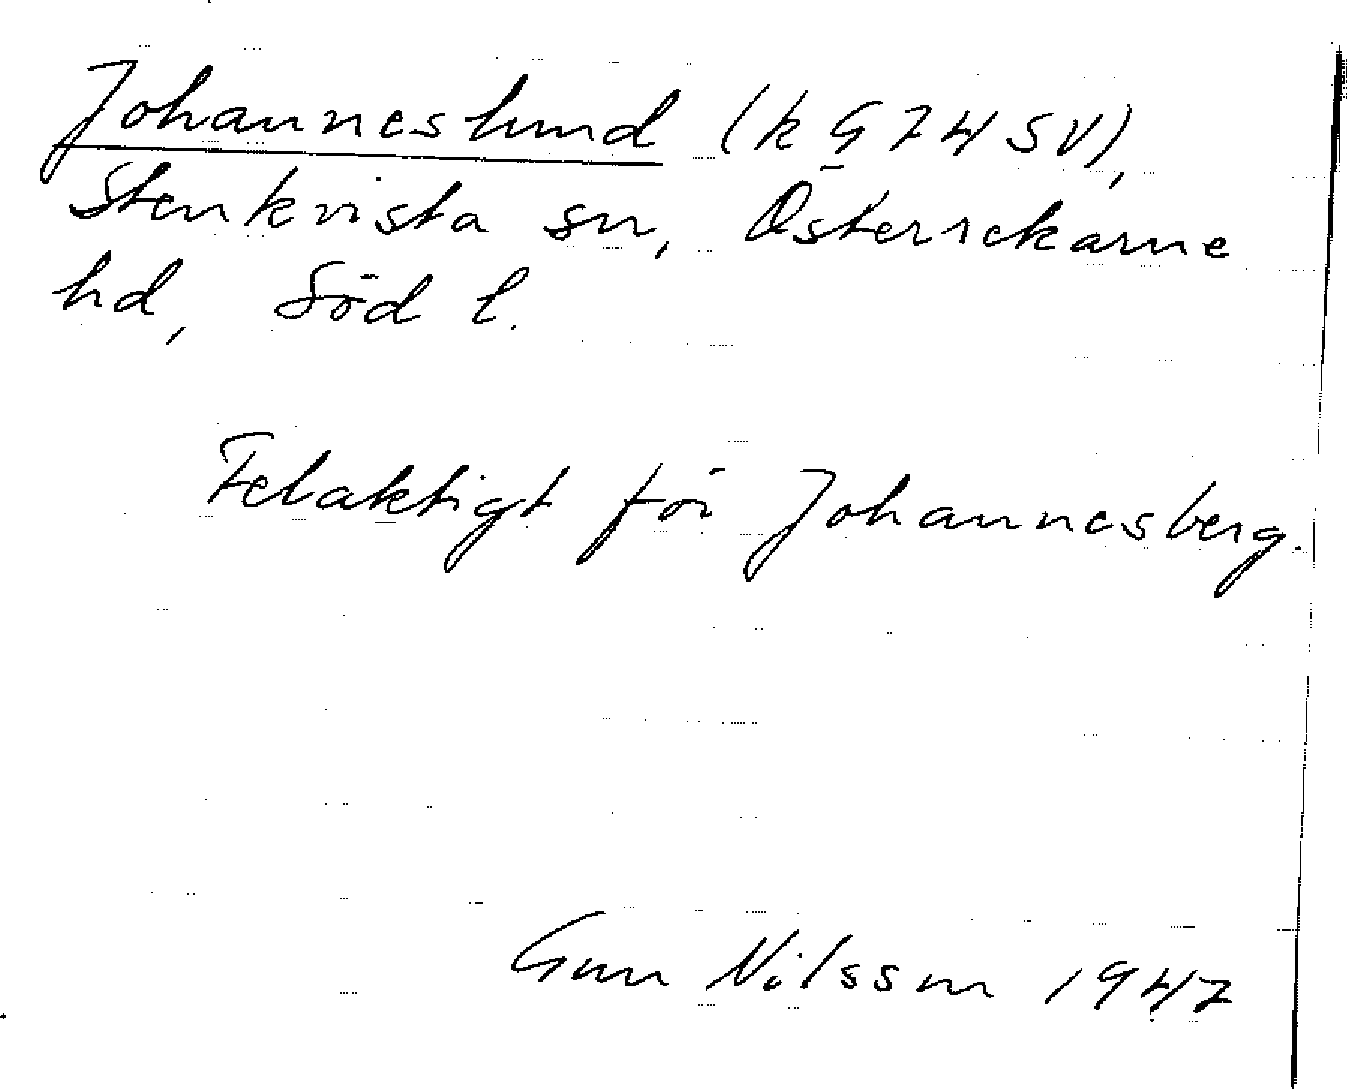 Johanneslund (k G 74 SV),
Stenkvista sn, Österrekarne
hd, Söd l.
Felaktigt för Johannesberg.
Gun Nilsson 1947